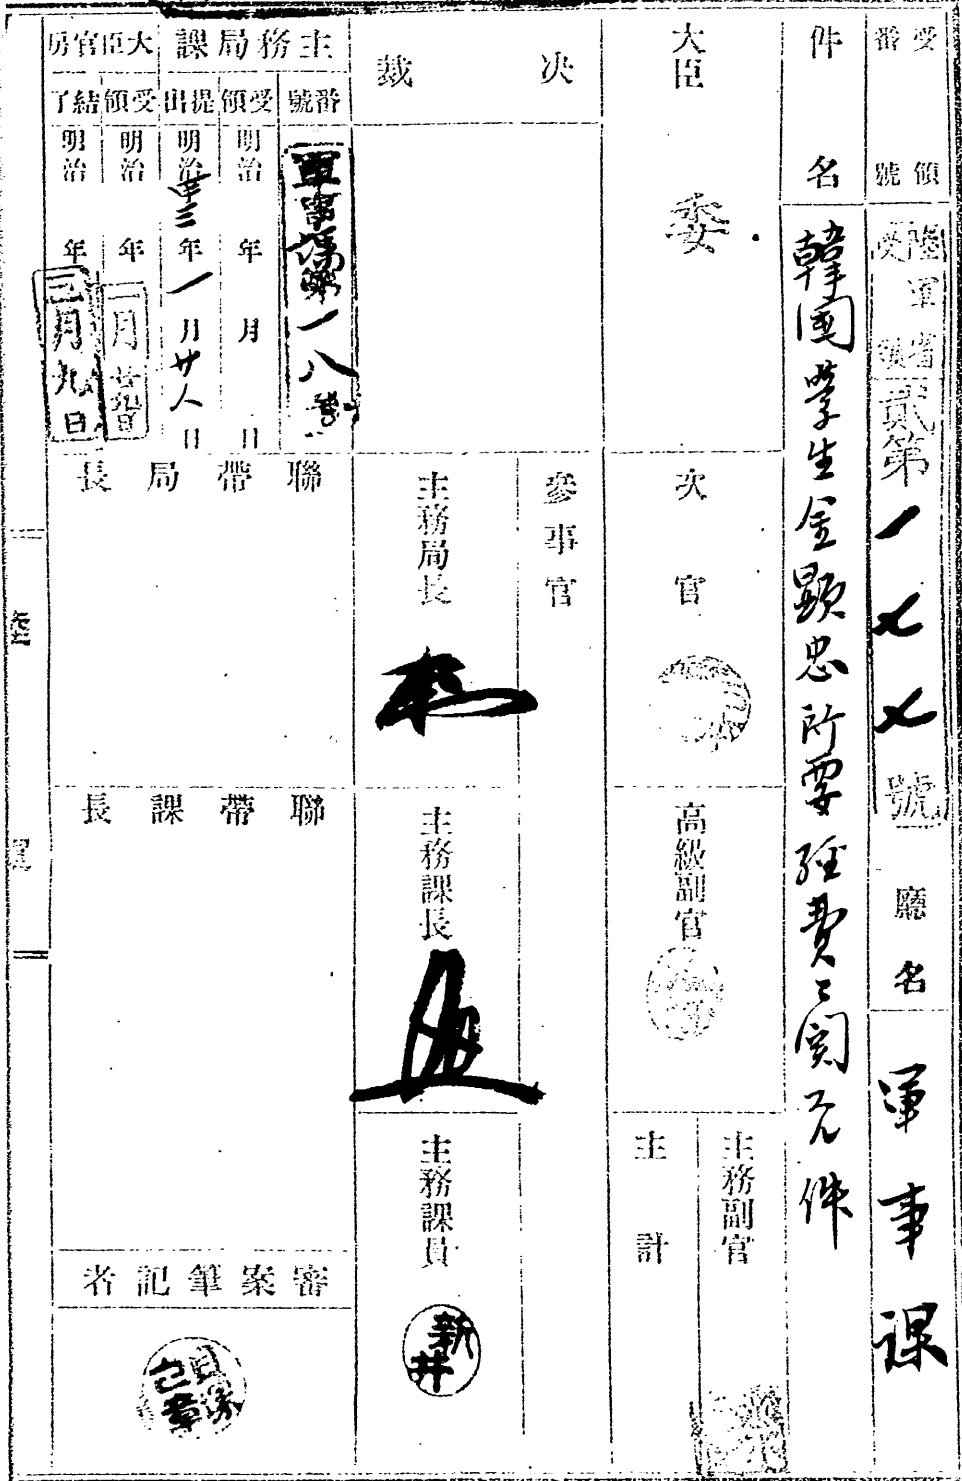 受領番號
陸軍省受領
貳第一七七號
廳名
軍事課
件名
韓國學生金顯忠所要経費ニ関スル件
大臣
委
次官
高級副官
主務副官
主計
決裁
參事官
主務局長
主務課長
主務課員
新井
主務局課
番號
軍事課第一八號
受領
明治 年 月 日
提出
明治卅三年一月廿八日
大臣官房
受領
明治 年
一月廿九日
結了
明治 年
三月九日
聯帶局長
聯帶課長
審案筆記者
陸軍